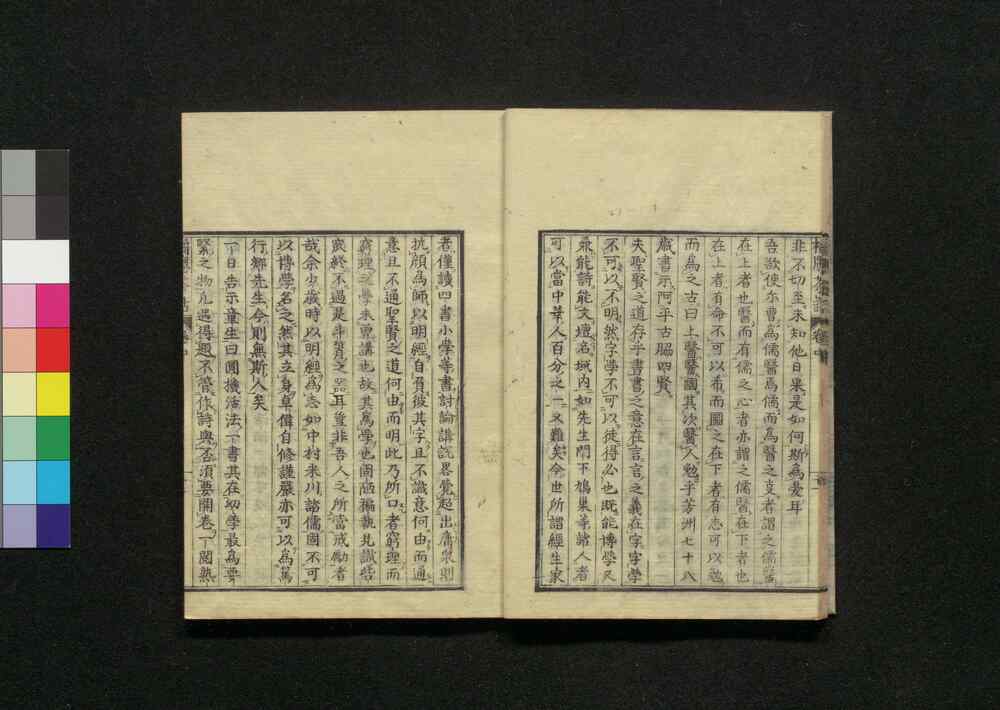 非不切至、未知他日果是如何斯為憂耳
吾欲使尓曹為儒醫為儒而為醫之支者謂之儒醫
在上者也醫而有儒之心者亦謂之儒醫在下者也
在上者有命不可以希而圖之在下者有志可以勉
而為之古曰上醫醫國其次醫人勉乎芳洲七十八
歲書示阿平古𦚾四賢
夫聖賢之道存乎書書之意在言言之義在字字學
不可以不明然字學不可以徒得必也既能博學又
兼能詩能文壇名域内如先生門下鳩巢等諸人者
可以當中華人百分之一又難矣今世所謂經生家
者僅讀四書小學等書討論講說畧覺超出庸衆則
抗顔為師以明經自負彼其字且不識意何由而通
意且不通聖賢之道何由而明此乃所口者窮理而
窮理之學未曾講也故其為學也固陋褊執凡識悟
哉余少歲時以明經為志如中村米川諸儒固不可
以博學名之然其立身卓偉自修謹嚴亦可以為篤
行鄉先生今則無斯人矣
一日告示童生曰圓機活法一書其在幼學最為要
緊之物凡遇得題不管作詩與否須要開卷一閱熟